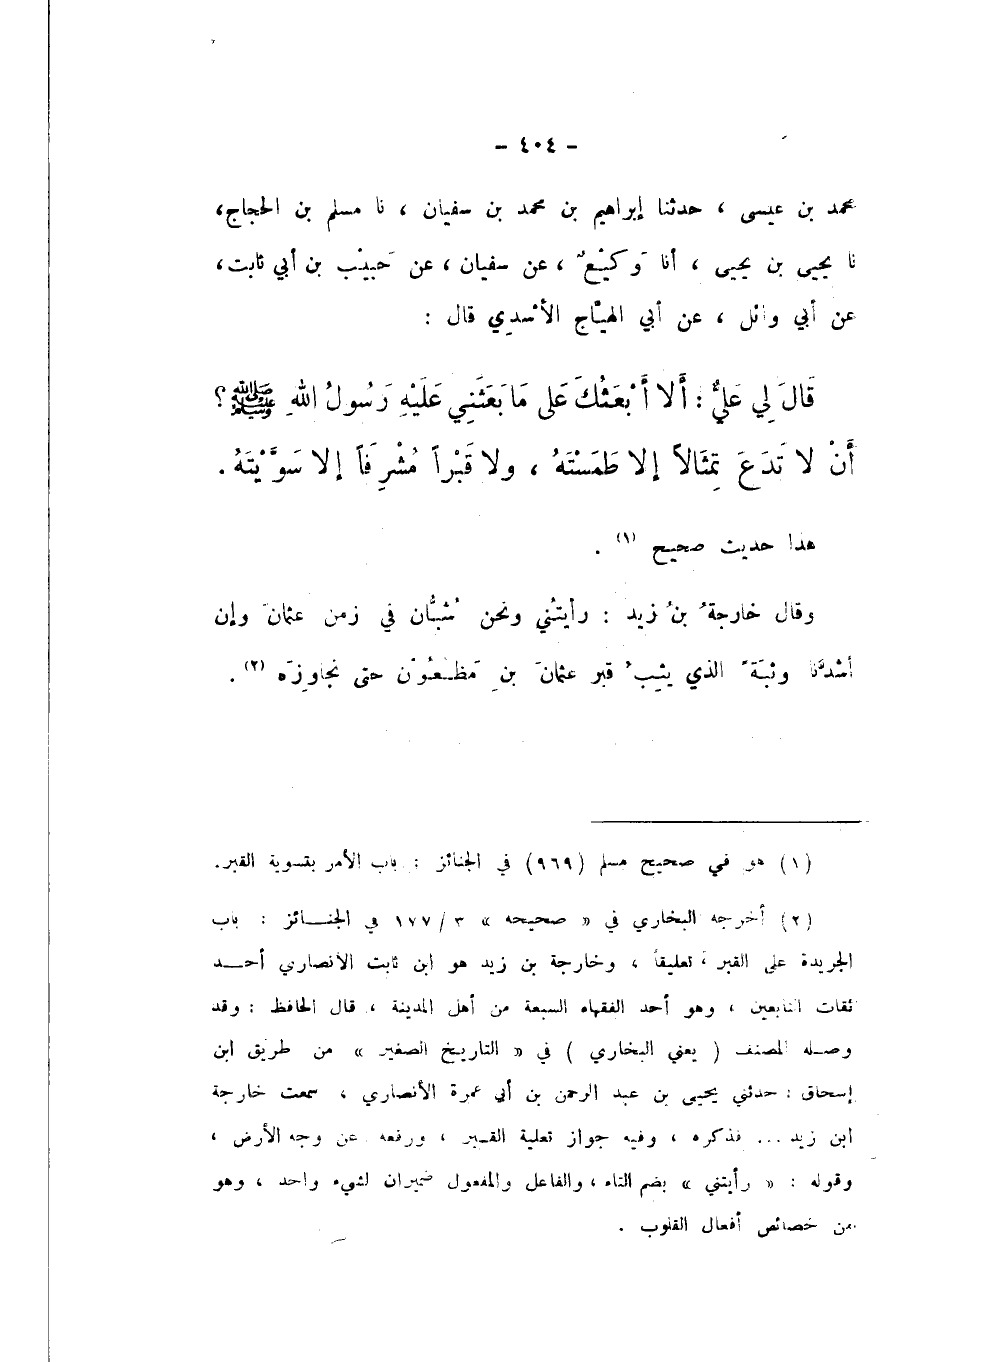 - ٤٠٤ -
محمد بن عيسى ، حدثنا إبراهيم بن محمد بن سفيان ، نا مسلم بن الحجاج،
نا يحيى بن يحيى ، أنا وَكيْعٌ ، عن سفيان ، عن حَبيْب بن أبي ثابت ،
عن أبي وائل ، عن أبي الهيّاج الأسْدِي قال :
قَالَ لِي عَليٌّ : أَلا أَبْعَثُكَ عَلى مَا بَعَثَنِي عَلَيْهِ رَسُولُ اللهِ ﷺ ؟
أَنْ لا تَدَعَ تِمثَالاً إلا طَمَسْتَهُ ، ولا قَبْراً مُشْرِفَاً إلا سَوَّيْتَهُ .
هذا حديث صحيح (١) .
وقال خارجةُ بنُ زيد : رأيتُني ونحن شُبَّان في زمن عثمانَ وإن
أشدَّنا وثبَةً الذي يثِبُ قبر عثمانَ بنِ مَظْعُوْن حتى نجاوِزَه (٢) .
(١) هو في صحيح مسلم (٩٦٩) في الجنائز : باب الأمر بتسوية القبر.
(٢) أخرجه البخاري في « صحيحه » ٣/ ١٧٧ في الجنـــائز : باب
الجريدة على القبر ، تعليقاً ، وخارجة بن زيد هو ابن ثابت الأنصاري أحــد
ثقات التابعين ، وهو أحد الفقهاء السبعة من أهل المدينة ، قال الحافظ : وقد
وصــله المصنف ( يعني البخاري ) في « التاريخ الصغير » من طريق ابن
إسحاق : حدثني يحيى بن عبد الرحمن بن أبي عمرة الأنصاري ، سمعت خارجة
ابن زيد ... فذكره ، وفيه جواز تعلية القــبر ، ورفعه عن وجه الأرض ،
وقوله : « رأيتني » بضم التاء ، والفاعل والمفعول ضميران لشيء واحد ، وهو
من خصائص أفعال القلوب .